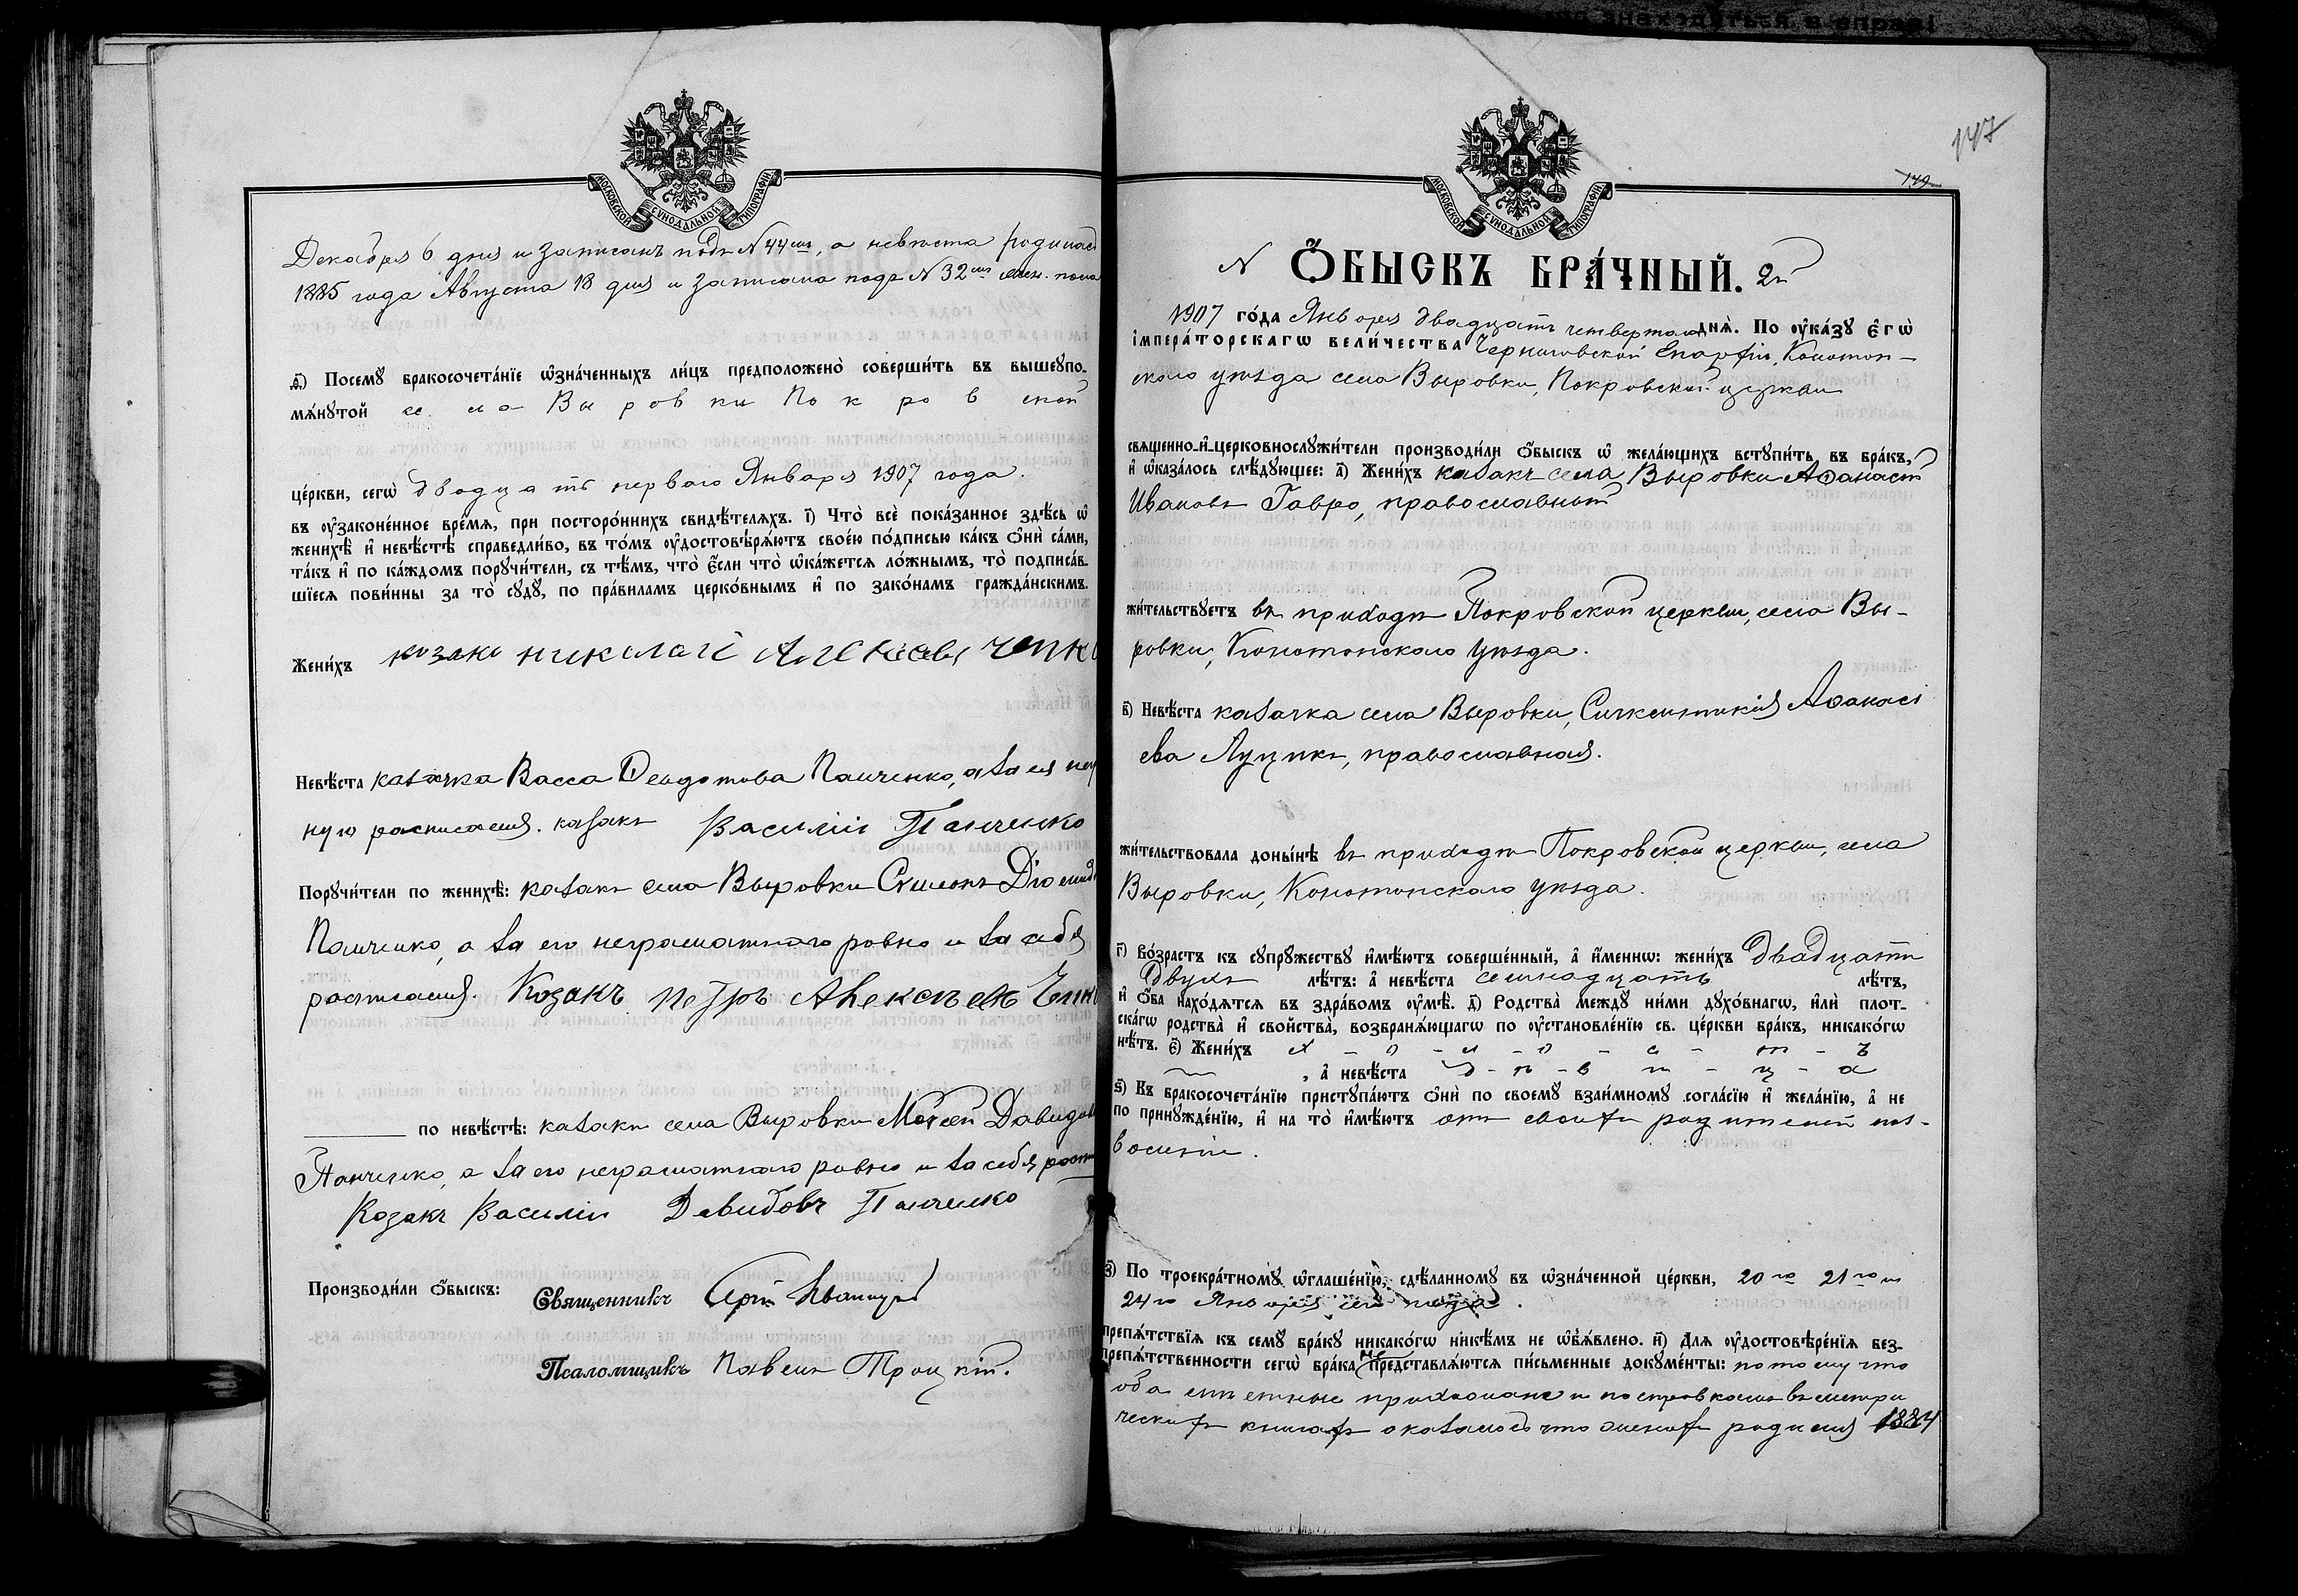 МОСКОВСКОЙ СѴНОДАЛЬНОЙ ТИПОГРАФІИ
Декабря 6 дня и записанъ подъ №44мъ, а невѣста родилась
1885 года Августа 18 дня и записана подъ №32мъ жен. пола
д҃) Посемꙋ бракосочета́нїе ѡ҆зна́ченныхъ ли́цъ предположено̀ соверши́ть въ вышеупо-
мѧ́нꙋтой села Выровки Покровской
це́ркви, сегѡ̀ двадцать перваго Января 1907 года.
въ ᲂу҆зако́ненное вре́мѧ, при посторо́ннихъ свидѣ́телѧхъ. і҃) Что̀ всѐ пока́занное здѣ́сь ѡ҆
женихѣ̀ и҆ невѣ́стѣ справедли́во, въ то́мъ ᲂу҆достовѣрѧ́ютъ свое́ю по́дписью ка́къ ѻ҆нѝ са́ми,
та́къ и҆ по ка́ждомъ порꙋчи́тели, съ тѣ́мъ, что̀ є҆́сли что̀ ѡ҆ка́жетсѧ ло́жнымъ, то̀ подписа́в-
шїесѧ пови́нны за то̀ сꙋдꙋ̀, по пра́виламъ церко́внымъ и҆ по зако́намъ гражда́нскимъ.
Жени́хъ козакъ николай Алексѣевъ
Невѣ́ста казачка Васса Ѳеодотова Панченко, а за ея
расписался. казакъ Василій Панченко
Порꙋчи́тели по женихѣ̀: казакъ села Выровки Симонъ
Панченко, а за его неграмотнаго ровно и за себя
расписался. Козакъ петръ Алексѣевъ
по невѣ́стѣ: казакъ села Выровки Моѵсей Давидовъ
Панченко, а за его неграмотнаго ровно и за себя
Козакъ Василій Давидовъ Панченко
Производи́ли ѻ҆́быскъ: Священникъ
Псаломщикъ Павелъ Троцкій.
147
149
МОСКОВСКОЙ СѴНОДАЛЬНОЙ ТИПОГРАФІИ
N Ѻ҆́БЫСКЪ БРА́ЧНЫЙ. 2й
1907 го́да Января двадцать четвертаго днѧ̀. По ᲂу҆ка́зꙋ є҆гѡ̀
і҆мпера́торскагѡ вели́чества Черниговской Епархіи, Конотоп-
скаго уѣзда села Выровки, Покровской церкви
свѧщенно- и҆ церковнослꙋжи́тели производи́ли ѻ҆́быскъ ѡ҆ жела́ющихъ встꙋпи́ть въ бра́къ,
и҆ ѡ҆каза́лось слѣ́дꙋющее: а҃) Жени́хъ казакъ села Выровки Аѳанасій
Ивановъ Гавро, православный
жи́тельствꙋетъ въ приходѣ Покровской церкви, села Вы-
ровки, Конотопскаго уѣзда.
в҃) Невѣ́ста казачка села Выровки, Синклитикія Аѳанасі
ева Луцикъ, православная.
жи́тельствовала доны́нѣ въ приходѣ Покровской церкви, села
Выровки, Конотопскаго уѣзда.
г҃) Во́зрастъ къ сꙋпрꙋ́жествꙋ и҆мѣ́ютъ соверше́нный, а҆ и҆́меннѡ: жени́хъ двадцати
двухъ лѣ́тъ: а҆ невѣ́ста семнадцать лѣ́тъ,
и҆ ѻ҆́ба нахо́дѧтсѧ въ здра́вомъ ᲂу҆мѣ̀. д҃) Родства̀ междꙋ̀ ни́ми дꙋхо́внагѡ, и҆лѝ плот-
ска́гѡ родства̀ и҆ сво́йства̀, возбранѧ́ющагѡ по ᲂу҆становле́нїю св. це́ркви бра́къ, никако́гѡ
нѣ́тъ. є҃) Жени́хъ х - о - л - о - с - т - ъ
, а҆ невѣ́ста д - ѣ - в и - ц - а
ѕ҃) Къ бракосочета́нїю пристꙋпа́ютъ ѻ҆нѝ по своемꙋ̀ взаи́мномꙋ согла́сїю и҆ жела́нїю, а҆ не
по принꙋжде́нїю, и҆ на то̀ и҆мѣ́ютъ отъ своихъ родителей поз-
воленіе.
з҃) По троекра́тномꙋ ѡ҆глаше́нїю, сдѣ́ланномꙋ въ ѡ҆зна́ченной це́ркви, 20го 21го и
24го Января сего года.
препѧ́тствїѧ къ семꙋ̀ бра́кꙋ никако́гѡ никѣ́мъ не ѡ҆б̾ѧ́влено. и҃) Длѧ ᲂу҆достовѣре́нїѧ без-
препѧ́тственности сегѡ̀ бра́ка не представлѧ́ютсѧ пи́сьменные докꙋме́нты: потому что
оба мѣстные прихожане и по справкамъ въ метри
ческихъ книгахъ оказалось что женихъ родился 1884